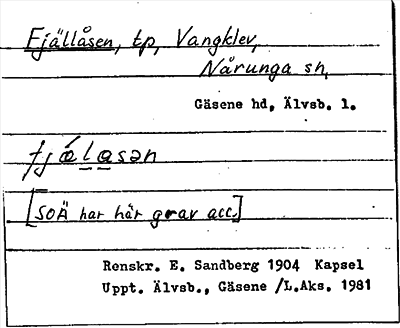 Fjällåsen, tp, Vangklev,
Nårunga sn,
Gäsene hd, Älvsb. l.
fjálasən
[SOÄ har här grav acc.]
Renskr. E. Sandberg 1904 Kapsel
Uppt. Älvsb., Gäsene /L.Aks. 1981